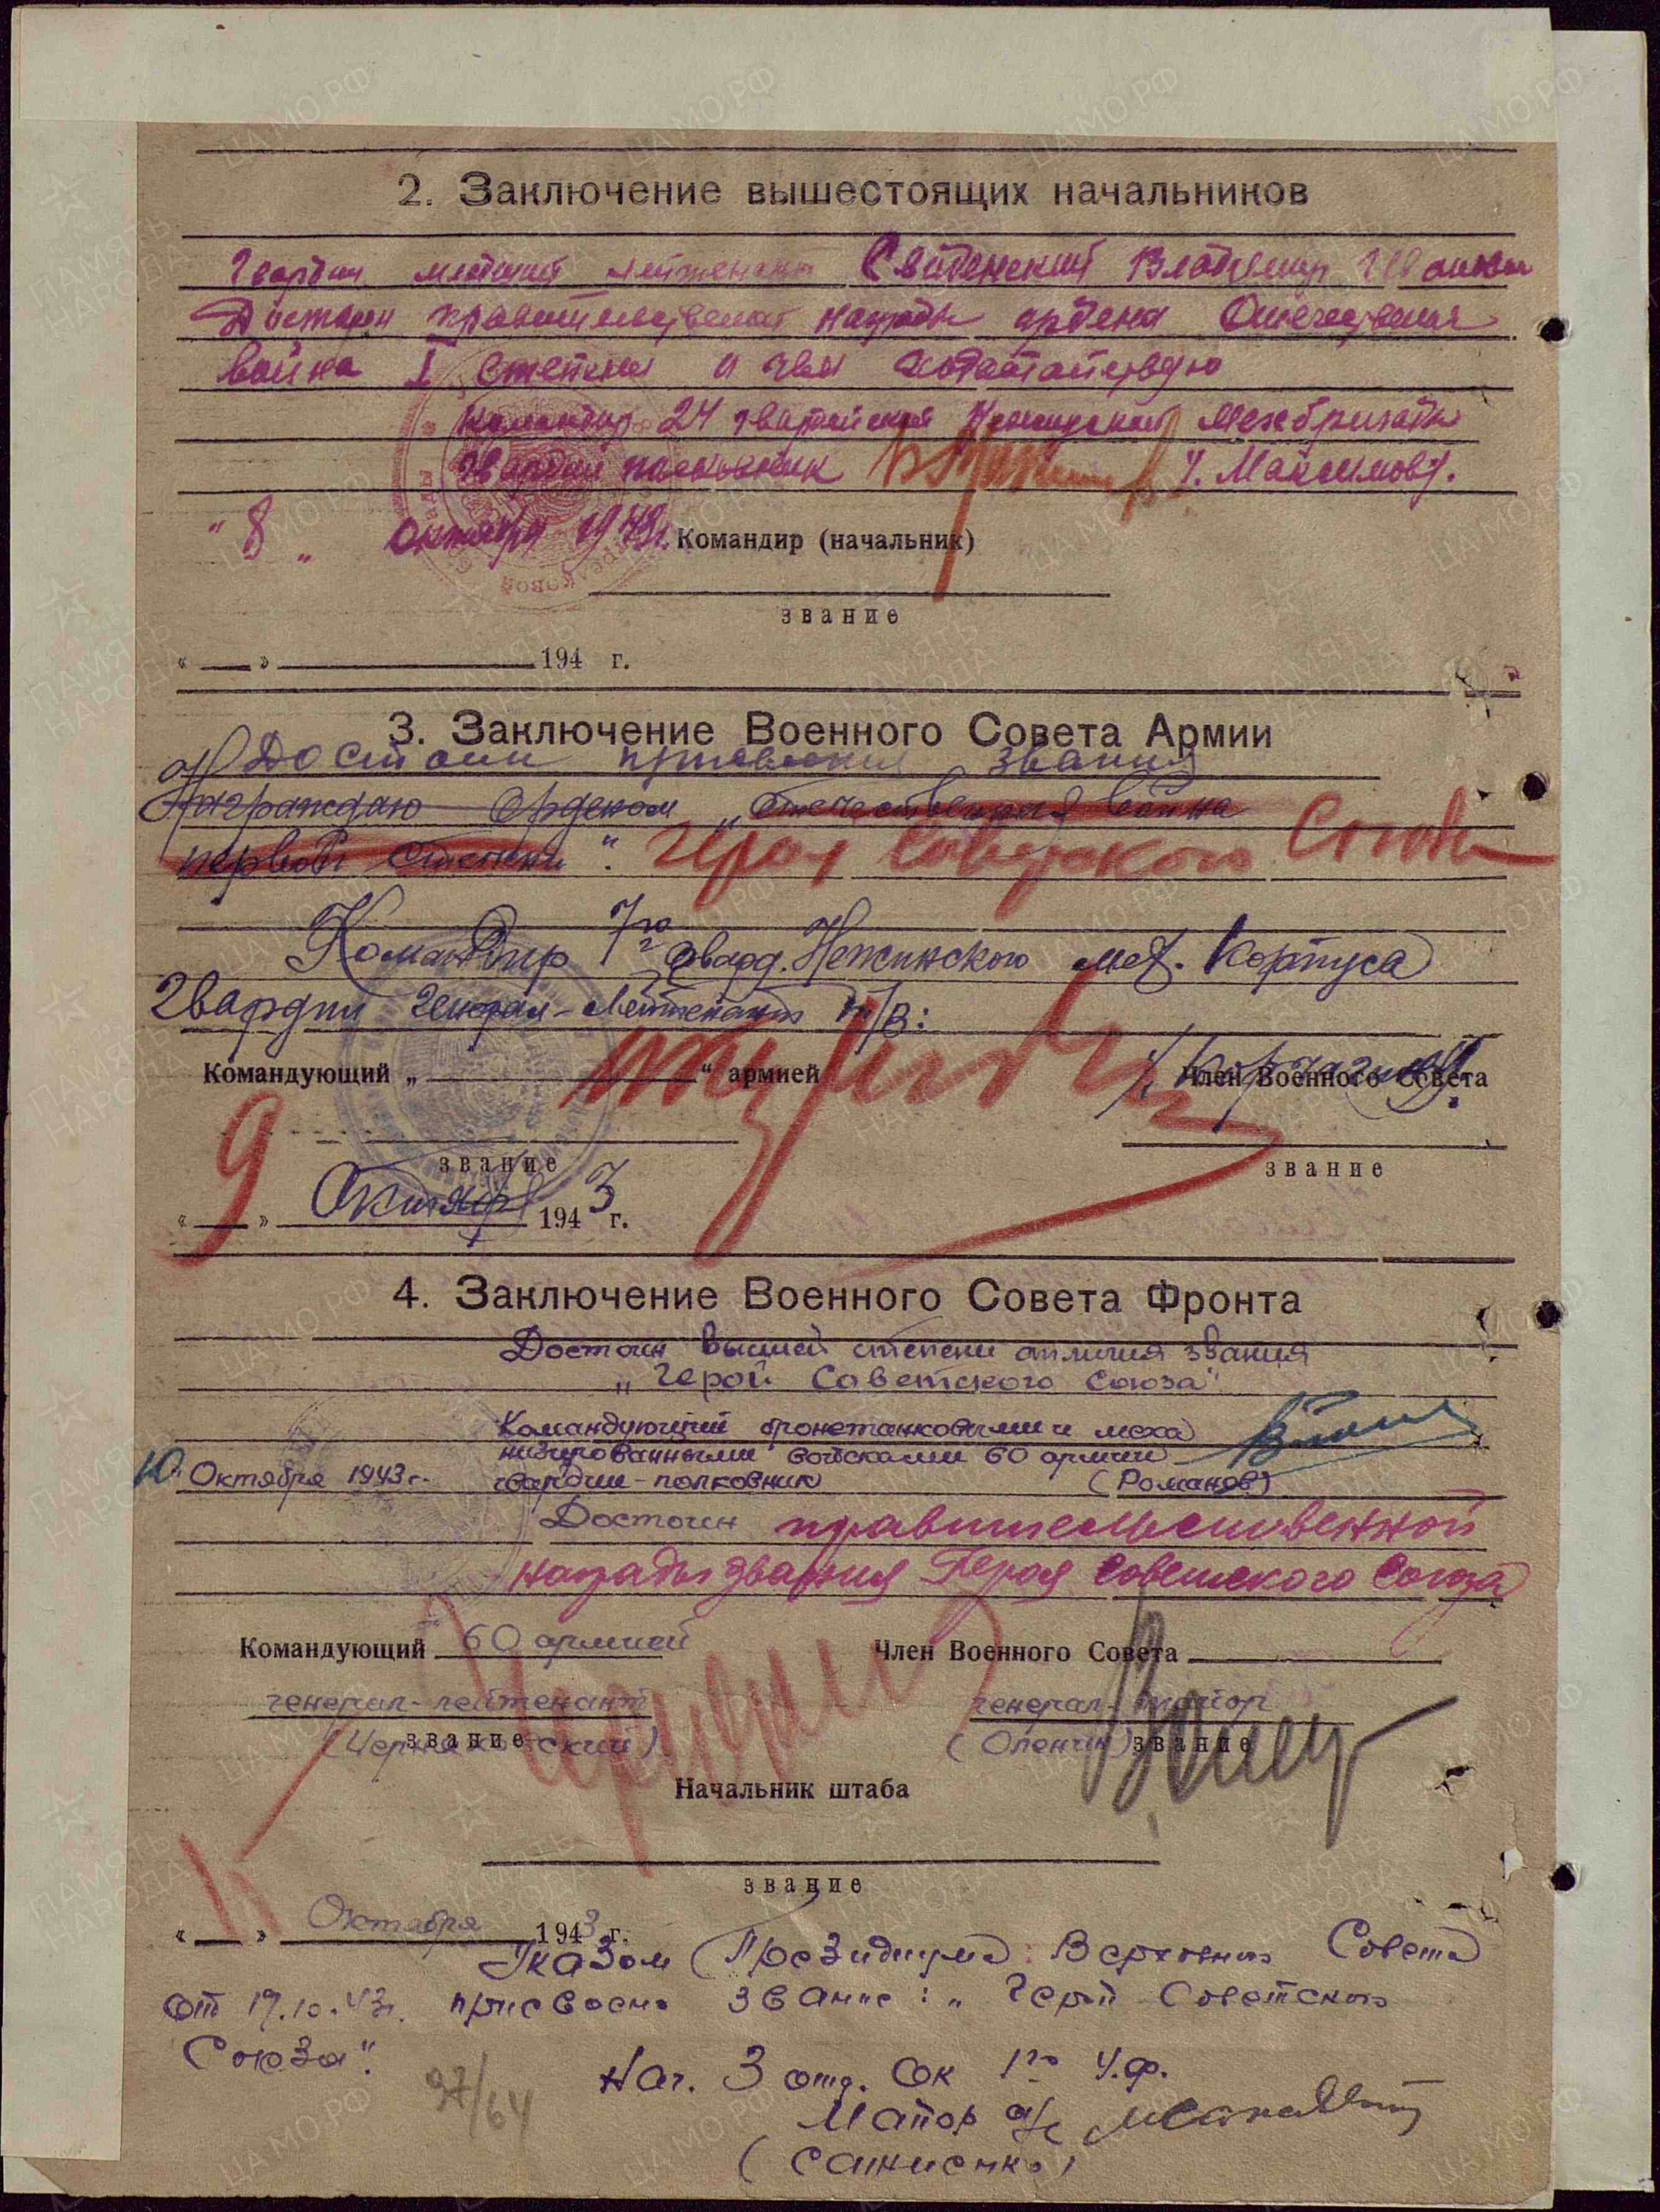 2. Заключение вышестоящих начальников
Гвардии младший лейтенант Свиденский Владимир Иванович
Достоин правительственной награды ордена Отечественная
война I степени о чем ходатайствую
Командир 24 гвардейской Нежинской мехбригады
Гвардии полковник /. Максимов/.
"8" октября 1943г. Командир (начальник)
звание
«__» ______ 194 г.
3. Заключение Военного Совета Армии
Достоин присвоения звания
Награждаю Орденом „Отечественная война
первой степени". Героя Советского Союза
Командир 7го гвард. Нежинского мех. Корпуса
Гвардии Генерал-Лейтенант т/в:
Командующий „______“ армией Член Военного Совета
/. Корчагин/.
звание звание
« 9 » Октября 1943 г.
4. Заключение Военного Совета Фронта
Достоин высшей степени отличия звания
„Герой Советского Союза"
Командующий бронетанковыми и меха
низированными войсками 60 армии
10" Октября 1943г. гвардии-полковник (Романов)
Достоин правительственной
награды звания Героя Советского Союза
Командующий 60 армией Член Военного Совета
генерал-лейтенант генерал-майор
(Черняховский) звание (Оленин) звание
Начальник штаба
звание
«__» Октября 1943 г.
Указом Президиума Верховного Совета
от 17.10.43г. присвоено звание: „Герой Советского
Союза".
Нач. 3 отд. ОК 1го У.Ф.
Майор а/с
97/64